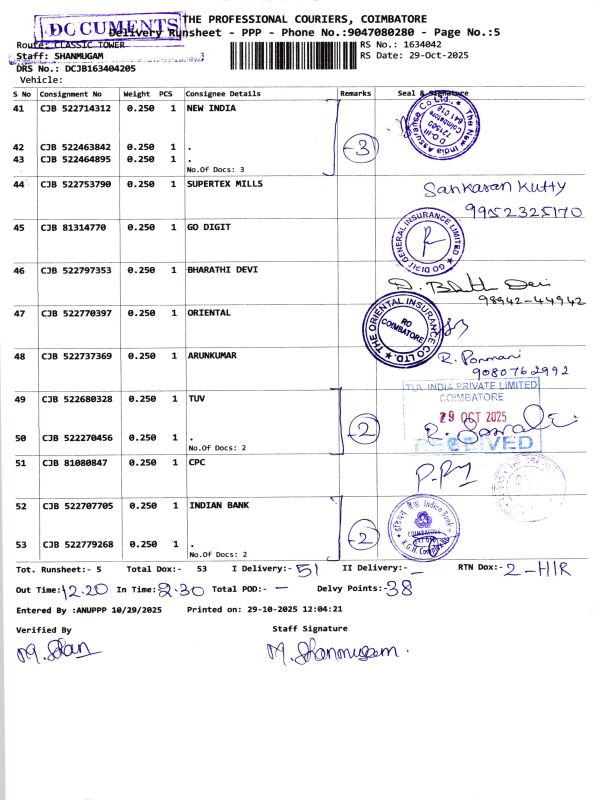 DOCUMENTS
THE PROFESSIONAL COURIERS, COIMBATORE
Delivery Runsheet - PPP - Phone No.:9047080280 - Page No.:5
Route: CLASSIC TOWER
RS No.: 1634042
Staff: SHANMUGAM
RS Date: 29-Oct-2025
DRS No.: DCJB163404205
Vehicle:
S No Consignment No Weight PCS Consignee Details Remarks Seal & Signature
41 CJB 522714312 0.250 1 NEW INDIA
42 CJB 522463842 0.250 1 .
43 CJB 522464895 0.250 1 .
No.Of Docs: 3
-3
The New India Assurance Co Ltd., D.O.III 721500 Coimbatore 641 018
44 CJB 522753790 0.250 1 SUPERTEX MILLS
Sankaran Kutty
9952325170
45 CJB 81314770 0.250 1 GO DIGIT
GO DIGIT GENERAL INSURANCE LIMITED
46 CJB 522797353 0.250 1 BHARATHI DEVI
98942-44942
47 CJB 522770397 0.250 1 ORIENTAL
THE ORIENTAL INSURANCE CO LTD. RO COIMBATORE
48 CJB 522737369 0.250 1 ARUNKUMAR
R. Ponmani
9080762992
49 CJB 522680328 0.250 1 TUV
TUV INDIA PRIVATE LIMITED
COIMBATORE
29 OCT 2025
RECEIVED
50 CJB 522270456 0.250 1 .
No.Of Docs: 2
-2
51 CJB 81080847 0.250 1 CPC
52 CJB 522707705 0.250 1 INDIAN BANK
इंडियन बैंक Indian Bank
COIMBATORE
53 CJB 522779268 0.250 1 .
No.Of Docs: 2
-2
Tot. Runsheet:- 5 Total Dox:- 53 I Delivery:- 51 II Delivery:- - RTN Dox:- 2-HIR
Out Time: 12.20 In Time: 2.30 Total POD:- - Delvy Points:- 38
Entered By :ANUPPP 10/29/2025 Printed on: 29-10-2025 12:04:21
Verified By Staff Signature
M. Shanmugam.